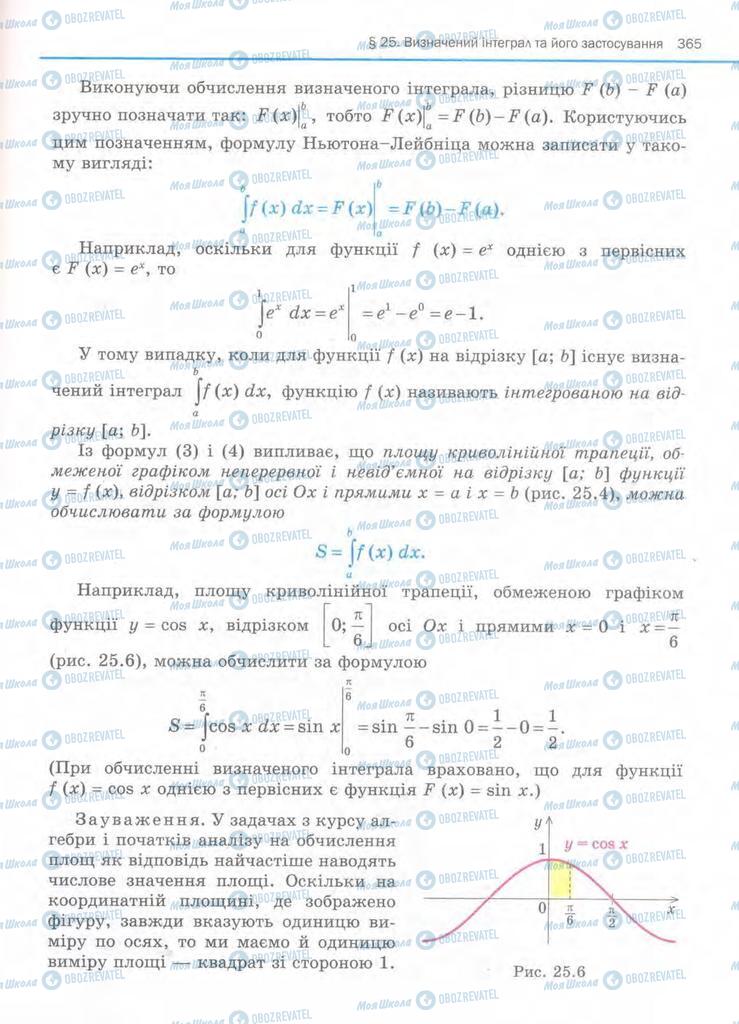 § 25. Визначений інтеграл та його застосування 365
Виконуючи обчислення визначеного інтеграла, різницю F (b) – F (a)
зручно позначати так: F (x)|ₐᵇ, тобто F (x)|ₐᵇ = F (b) – F (a). Користуючись
цим позначенням, формулу Ньютона–Лейбніца можна записати у тако-
му вигляді:
∫ₐᵇ f (x) dx = F (x)|ₐᵇ = F (b) – F (a).
Наприклад, оскільки для функції f (x) = eˣ однією з первісних
є F (x) = eˣ, то
∫₀¹ eˣ dx = eˣ|₀¹ = e¹ – e⁰ = e – 1.
У тому випадку, коли для функції f (x) на відрізку [a; b] існує визна-
чений інтеграл ∫ₐᵇ f (x) dx, функцію f (x) називають інтегрованою на від-
різку [a; b].
Із формул (3) і (4) випливає, що площу криволінійної трапеції, об-
меженої графіком неперервної і невід'ємної на відрізку [a; b] функції
y = f (x), відрізком [a; b] осі Ox і прямими x = a і x = b (рис. 25.4), можна
обчислювати за формулою
S = ∫ₐᵇ f (x) dx.
Наприклад, площу криволінійної трапеції, обмеженою графіком
функції y = cos x, відрізком [0; π/6] осі Ox і прямими x = 0 і x = π/6
(рис. 25.6), можна обчислити за формулою
S = ∫₀^(π/6) cos x dx = sin x|₀^(π/6) = sin π/6 – sin 0 = 1/2 – 0 = 1/2.
(При обчисленні визначеного інтеграла враховано, що для функції
f (x) = cos x однією з первісних є функція F (x) = sin x.)
Зауваження. У задачах з курсу ал-
гебри і початків аналізу на обчислення
площ як відповідь найчастіше наводять
числове значення площі. Оскільки на
координатній площині, де зображено
фігуру, завжди вказують одиницю ви-
міру по осях, то ми маємо й одиницю
виміру площі — квадрат зі стороною 1.
y
1
y = cos x
0 π/6 π/2 x
Рис. 25.6
МояШкола OBOZREVATEL